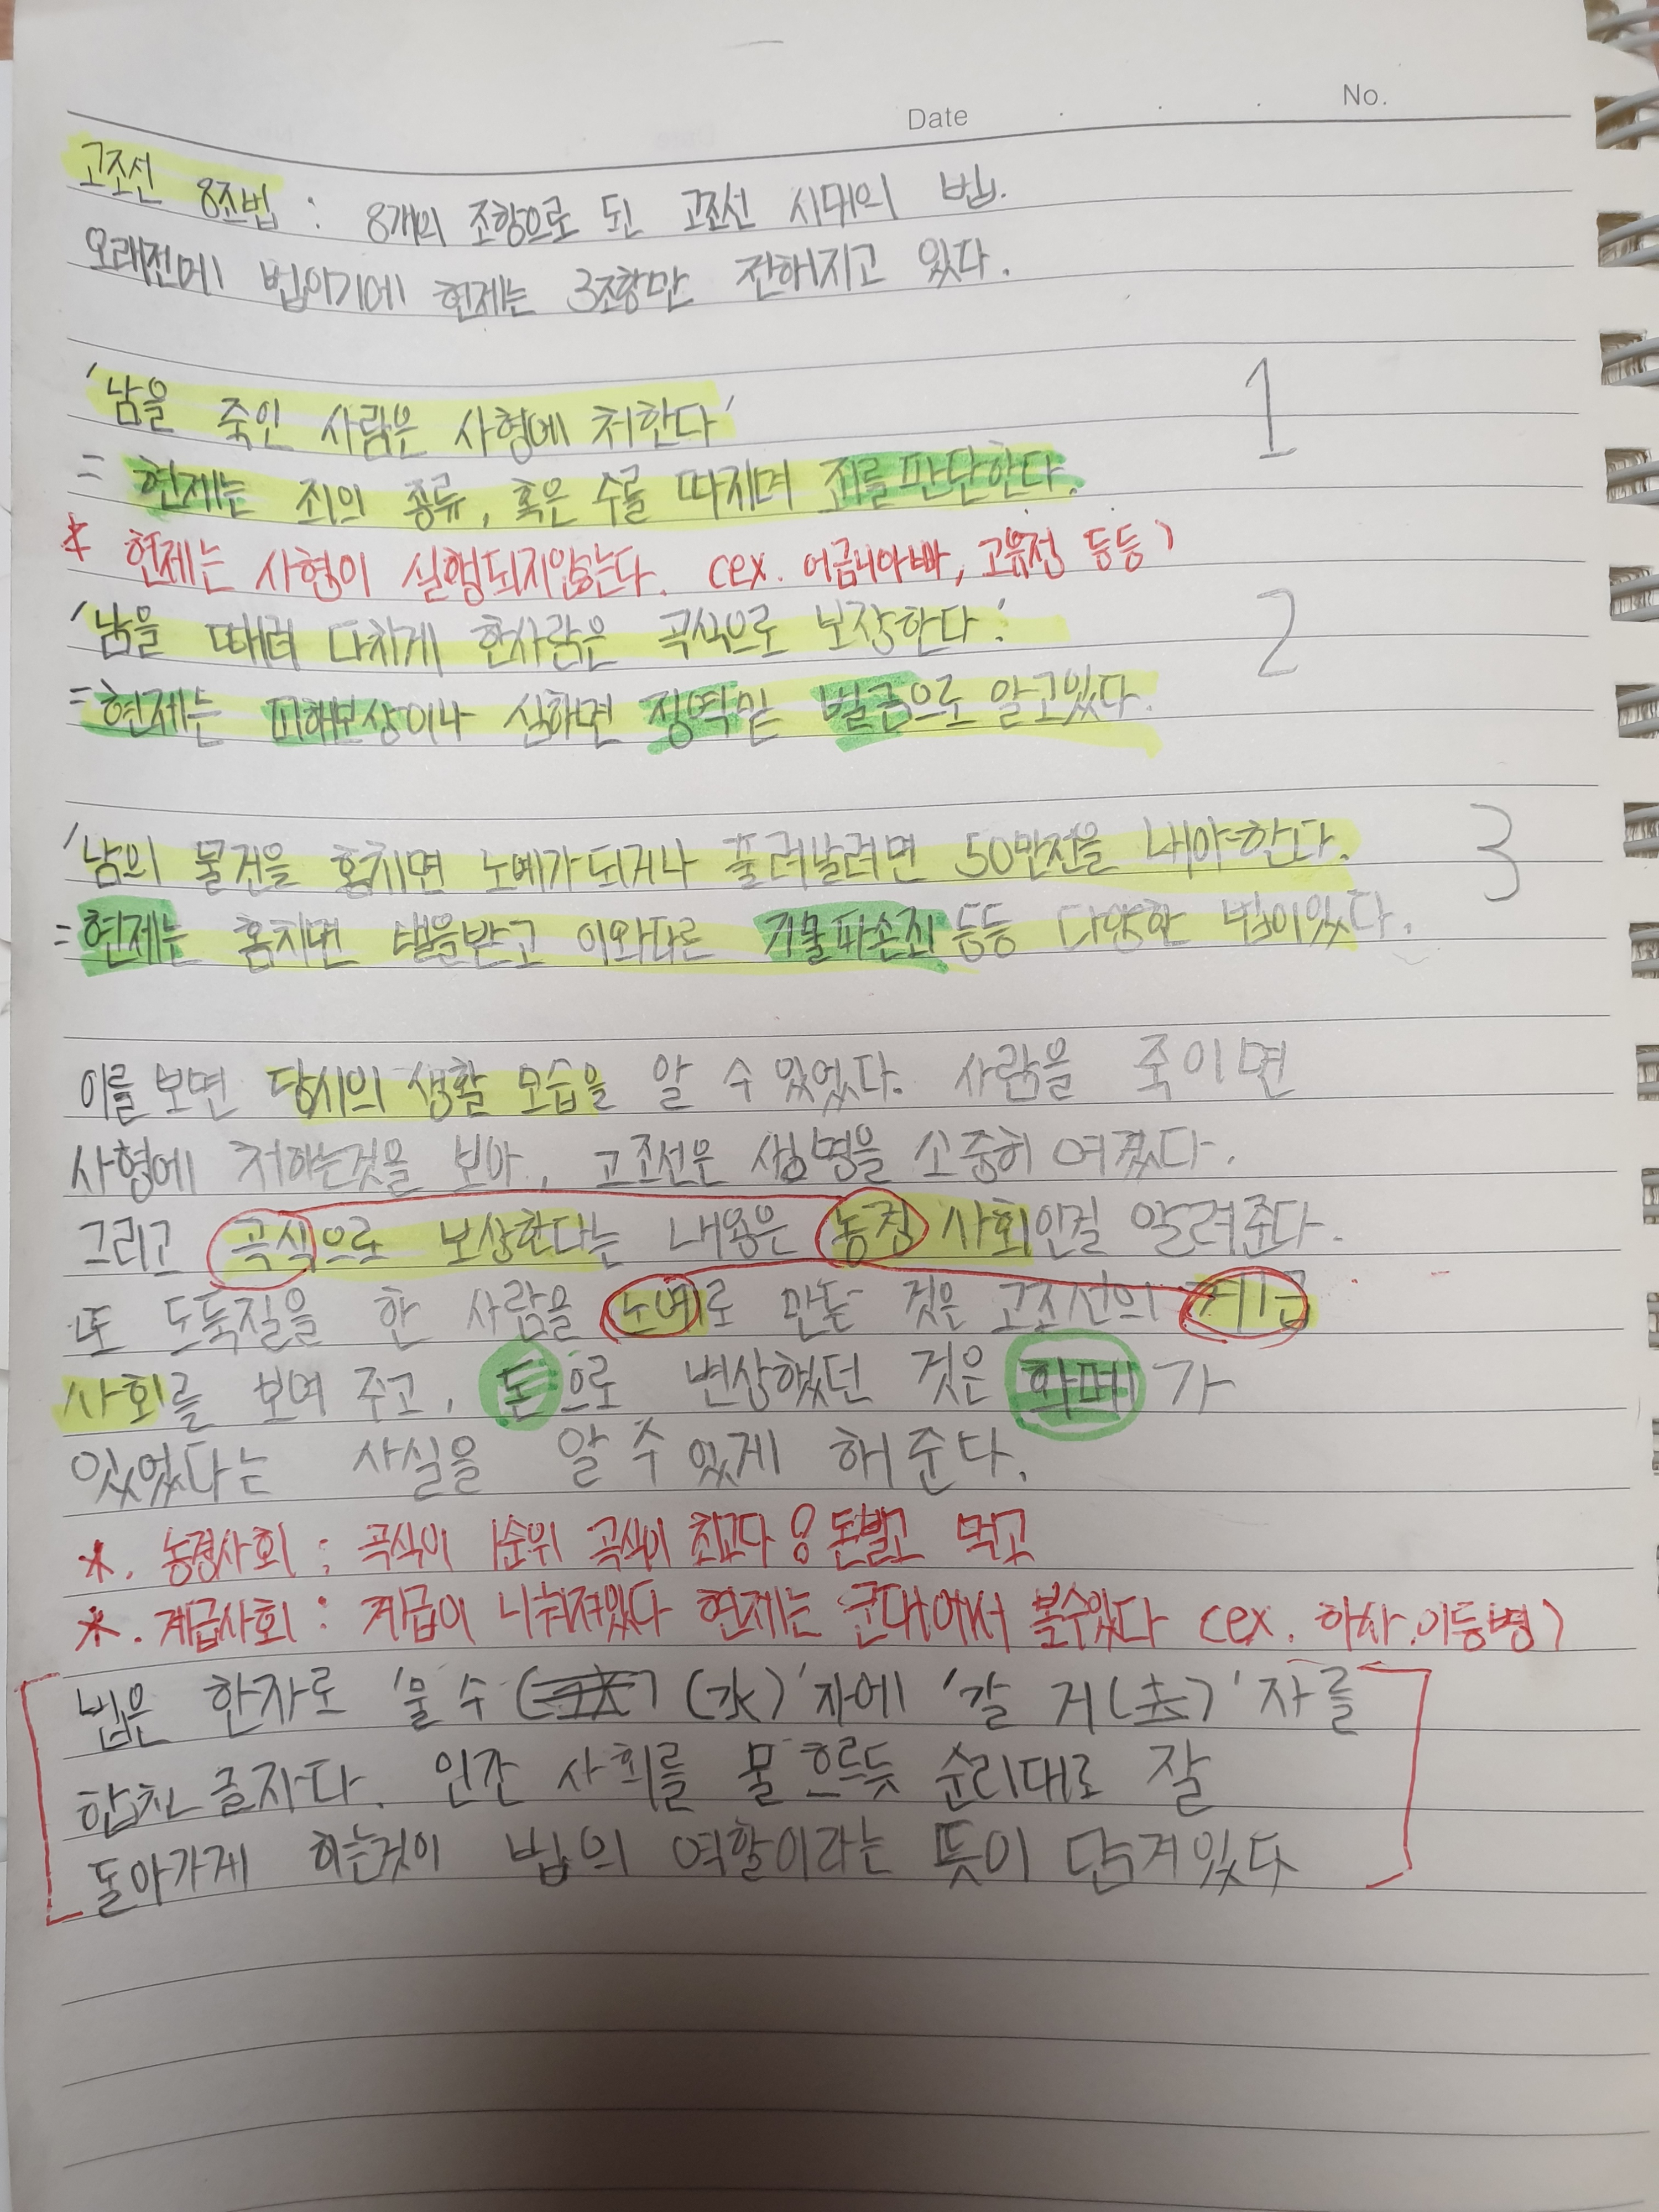 Date . . No.
고조선 8조법 : 8개의 조항으로 된 고조선 시대의 법.
오래전에 법이기에 현제는 3조항만 전해지고 있다.
'남을 죽인 사람은 사형에 처한다' 1
= 현제는 죄의 종류, 혹은 수를 따지며 죄를 판단한다.
* 현제는 사형이 실행되지않는다. (ex. 어금니아빠, 고유정 등등)
'남을 때려 다치게 한사람은 곡식으로 보장한다.' 2
= 현제는 피해보상이나 심하면 징역및 벌금으로 알고있다.
'남의 물건을 훔치면 노예가되거나 풀려날려면 50만전을 내야한다. 3
= 현제는 훔치면 벌을받고 이와다른 기물파손죄 등등 다양한 법이있다.
이를 보면 당시의 생활 모습을 알 수 있었다. 사람을 죽이면
사형에 처하는것을 보아, 고조선은 생명을 소중히 여겼다.
그리고 곡식으로 보상한다는 내용은 농경 사회인걸 알려준다.
또 도둑질을 한 사람을 노예로 만든 것은 고조선의 계급
사회를 보여 주고, 돈으로 변상했던 것은 화폐가
있었다는 사실을 알 수 있게 해 준다.
*. 농경사회 : 곡식이 1순위 곡식이 최고다 돈벌고 먹고
*. 계급사회 : 계급이 나눠져있다 현제는 군대에서 볼수있다 (ex. 하사.이등병)
법은 한자로 '물 수 (水)'자에 '갈 거(去)'자를
합친 글자다. 인간 사회를 물 흐르듯 순리대로 잘
돌아가게 하는것이 법의 역할이라는 뜻이 담겨있다